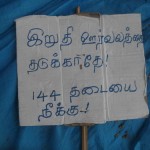 இறுதி ஊர்வலத்தை
தடுக்காதே!
144 தடையை
நீக்கு!